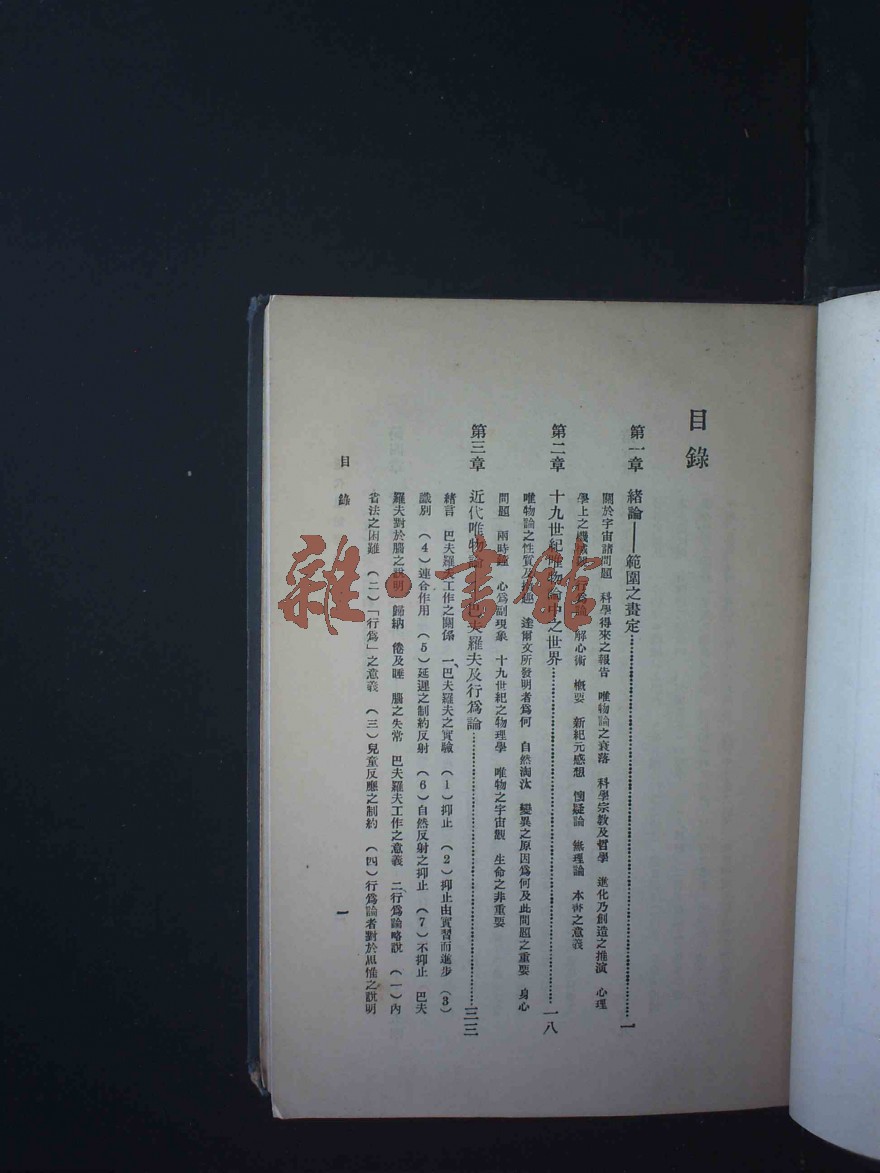 目錄
第一章 緒論——範圍之畫定 一
關於宇宙諸問題 科學得來之報告 唯物論之衰落 科學宗教及哲學 進化乃創造之推演 心理
學上之機械觀 行為論 解心術 概要 新紀元感想 懷疑論 無理論 本書之意義
第二章 十九世紀唯物論中之世界 一八
唯物論之性質及 達爾文所發明者為何 自然淘汰 變異之原因為何及此問題之重要 身心
問題 兩時鐘 心為副現象 十九世紀之物理學 唯物之宇宙觀 生命之非重要
第三章 近代唯物論 巴夫羅夫及行為論 三三
緒言 巴夫羅夫工作之關係 一、巴夫羅夫之實驗 (1)抑止 (2)抑止由實習而進步 (3)
識別 (4)連合作用 (5)延遲之制約反射 (6)自然反射之抑止 (7)不抑止 巴夫
羅夫對於腦之說明 歸納 倦及睡 腦之失常 巴夫羅夫工作之意義 二、行為論略說 (一)內
省法之困難 (二)「行為」之意義 (三)兒童反應之制約 (四)行為論者對於思惟之說明
目錄
一
雜·書館